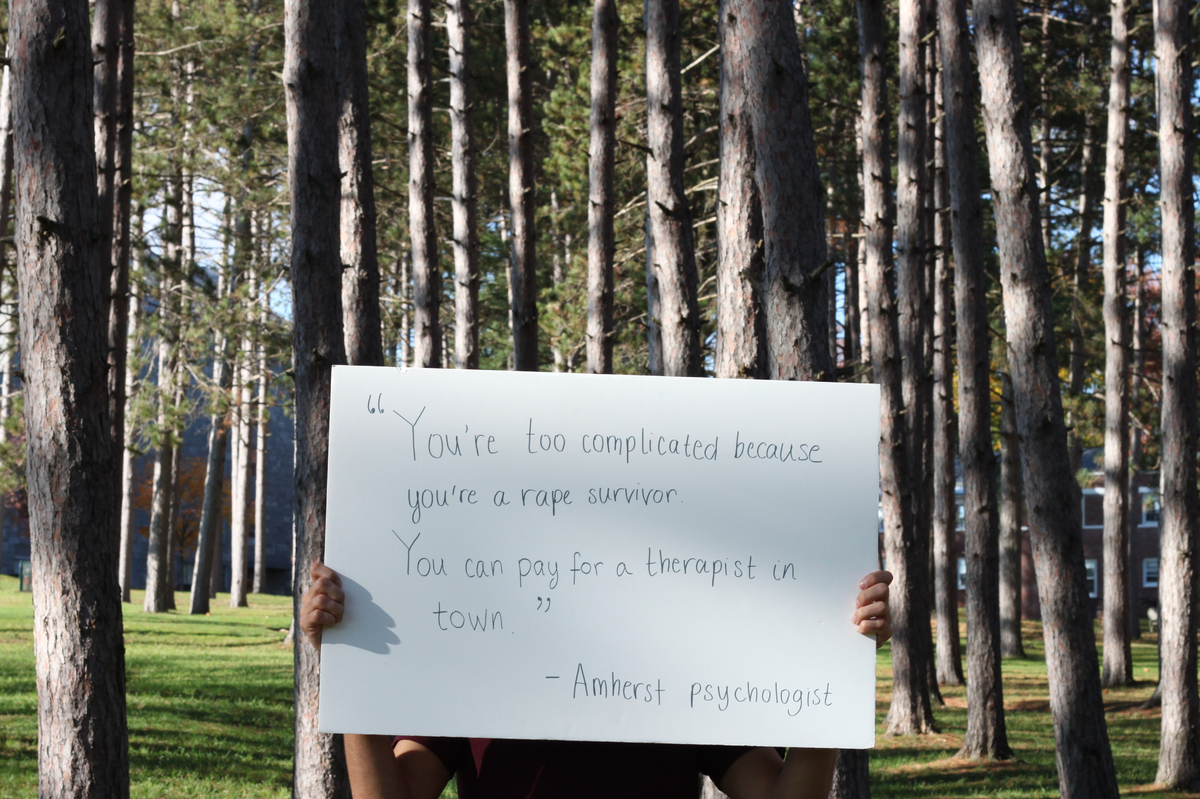 “You're too complicated because
you're a rape survivor.
You can pay for a therapist in
town.”
- Amherst psychologist